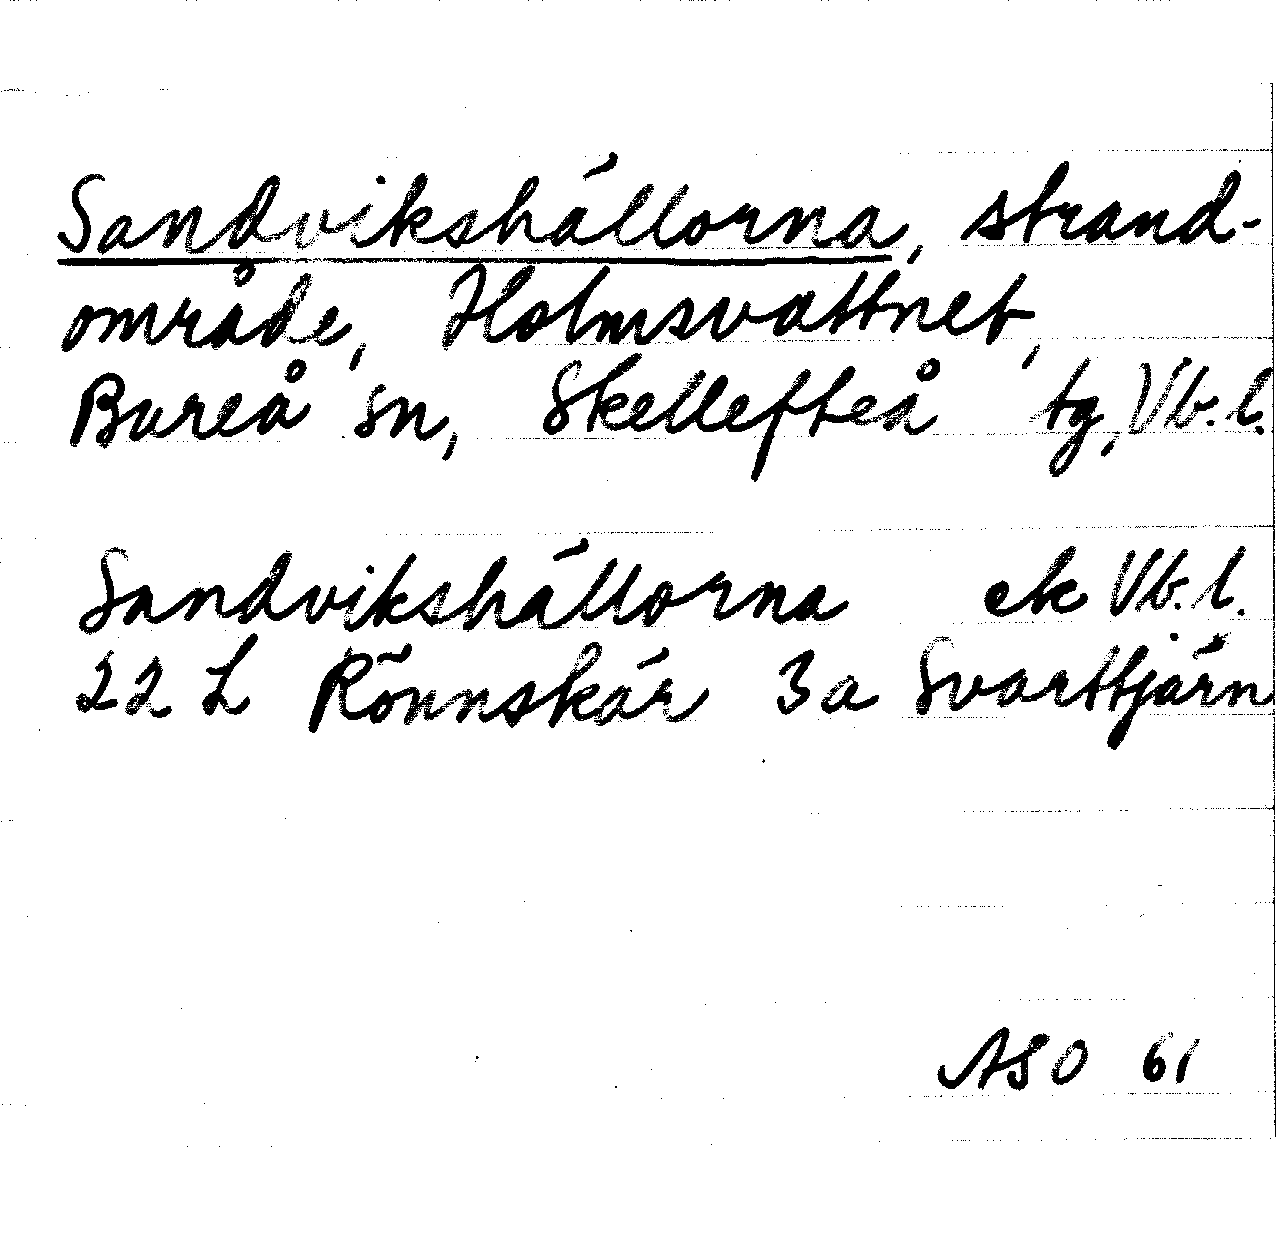 Sandvikshällorna, strand-
område, Holmsvattnet,
Bureå sn, Skellefteå tg, Vb.l.
Sandvikshällorna ek Vb.l.
22 L Rönnskär 3a Svarttjärn
ASO 61